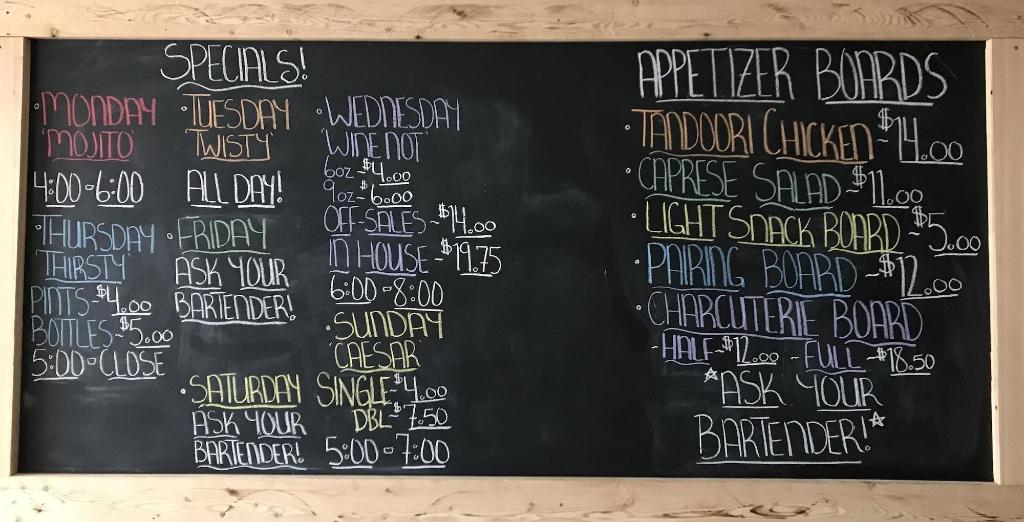 SPECIALS!
· MONDAY
'MOJITO'
4:00-6:00
· TUESDAY
'TWISTY'
ALL DAY!
· WEDNESDAY
'WINE NOT'
6oz ~ $4.00
9oz ~ $6.00
OFF-SALES ~ $14.00
IN HOUSE ~ $19.75
6:00-8:00
· THURSDAY
'THIRSTY'
PINTS ~ $4.00
BOTTLES ~ $5.00
5:00-CLOSE
· FRIDAY
ASK YOUR
BARTENDER!
· SATURDAY
ASK YOUR
BARTENDER!
· SUNDAY
'CAESAR'
SINGLE ~ $4.00
DBL ~ $7.50
5:00-7:00
APPETIZER BOARDS
· TANDOORI CHICKEN ~ $14.00
· CAPRESE SALAD ~ $11.00
· LIGHT SNACK BOARD ~ $5.00
· PAIRING BOARD ~ $12.00
· CHARCUTERIE BOARD
- HALF ~ $12.00 - FULL ~ $18.50
☆ASK YOUR
BARTENDER!☆